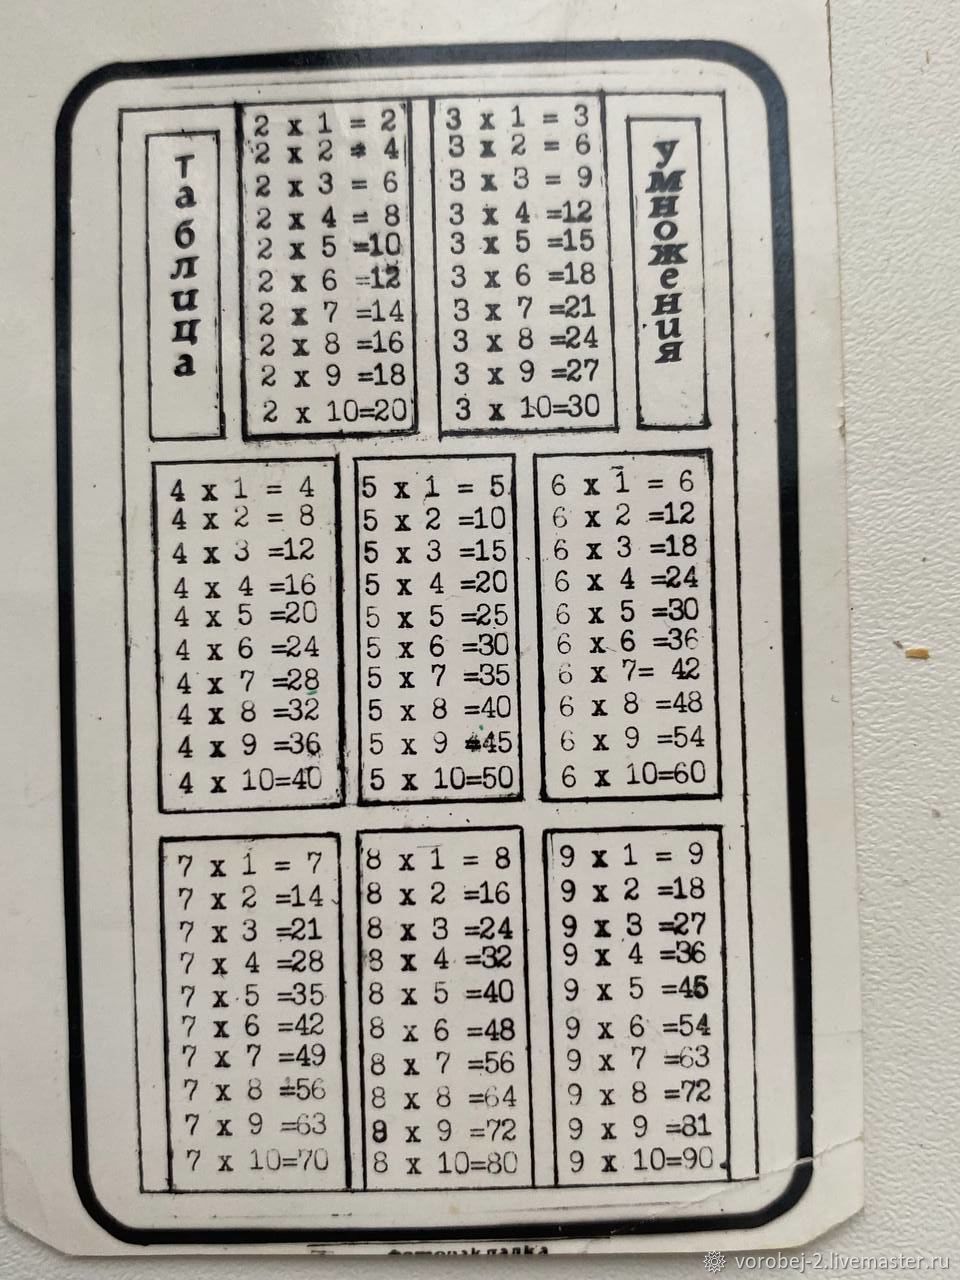 таблица
2 x 1 = 2
2 x 2 = 4
2 x 3 = 6
2 x 4 = 8
2 x 5 =10
2 x 6 =12
2 x 7 =14
2 x 8 =16
2 x 9 =18
2 x 10=20
3 x 1 = 3
3 x 2 = 6
3 x 3 = 9
3 x 4 =12
3 x 5 =15
3 x 6 =18
3 x 7 =21
3 x 8 =24
3 x 9 =27
3 x 10=30
умножения
4 x 1 = 4
4 x 2 = 8
4 x 3 =12
4 x 4 =16
4 x 5 =20
4 x 6 =24
4 x 7 =28
4 x 8 =32
4 x 9 =36
4 x 10=40
5 x 1 = 5
5 x 2 =10
5 x 3 =15
5 x 4 =20
5 x 5 =25
5 x 6 =30
5 x 7 =35
5 x 8 =40
5 x 9 =45
5 x 10=50
6 x 1 = 6
6 x 2 =12
6 x 3 =18
6 x 4 =24
6 x 5 =30
6 x 6 =36
6 x 7= 42
6 x 8 =48
6 x 9 =54
6 x 10=60
7 x 1 = 7
7 x 2 =14
7 x 3 =21
7 x 4 =28
7 x 5 =35
7 x 6 =42
7 x 7 =49
7 x 8 =56
7 x 9 =63
7 x 10=70
8 x 1 = 8
8 x 2 =16
8 x 3 =24
8 x 4 =32
8 x 5 =40
8 x 6 =48
8 x 7 =56
8 x 8 =64
8 x 9 =72
8 x 10=80
9 x 1 = 9
9 x 2 =18
9 x 3 =27
9 x 4 =36
9 x 5 =45
9 x 6 =54
9 x 7 =63
9 x 8 =72
9 x 9 =81
9 x 10=90
vorobej-2.livemaster.ru